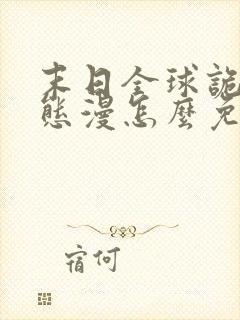 末日全球詭
態漫怎麼免
宿何